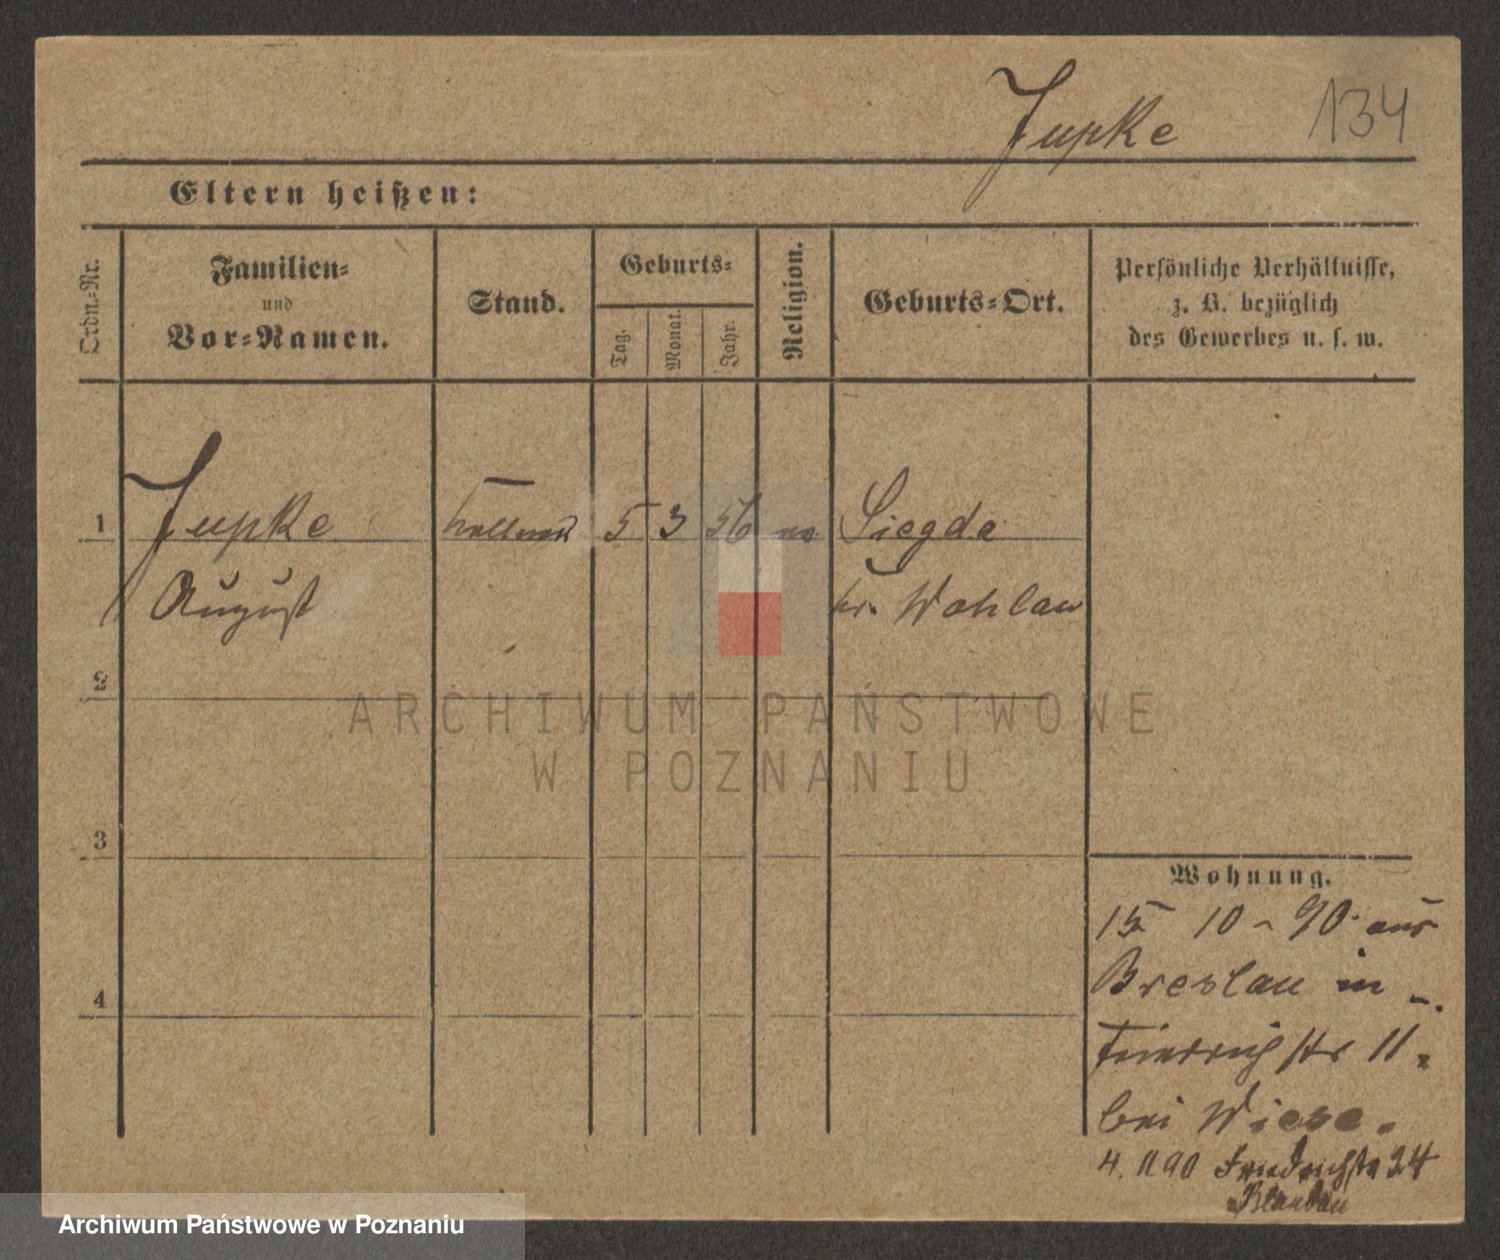 Jupke 134
Eltern heißen:
Ordn.-Nr.
Familien-
und
Vor-Namen.
Stand.
Geburts-
Tag.
Monat.
Jahr.
Religion.
Geburts-Ort.
Persönliche Verhältnisse,
z. B. bezüglich
des Gewerbes u. s. w.
1 Jupke Kellner 5 3 56 Siegda
August Kr. Wohlau
2
3
4
Wohnung.
15 10 - 90. aus
Breslau in
Friedrichstr 11.
bei Wiese.
4. 11 90 Friedrichstr 24
ARCHIWUM PAŃSTWOWE
W POZNANIU
Archiwum Państwowe w Poznaniu